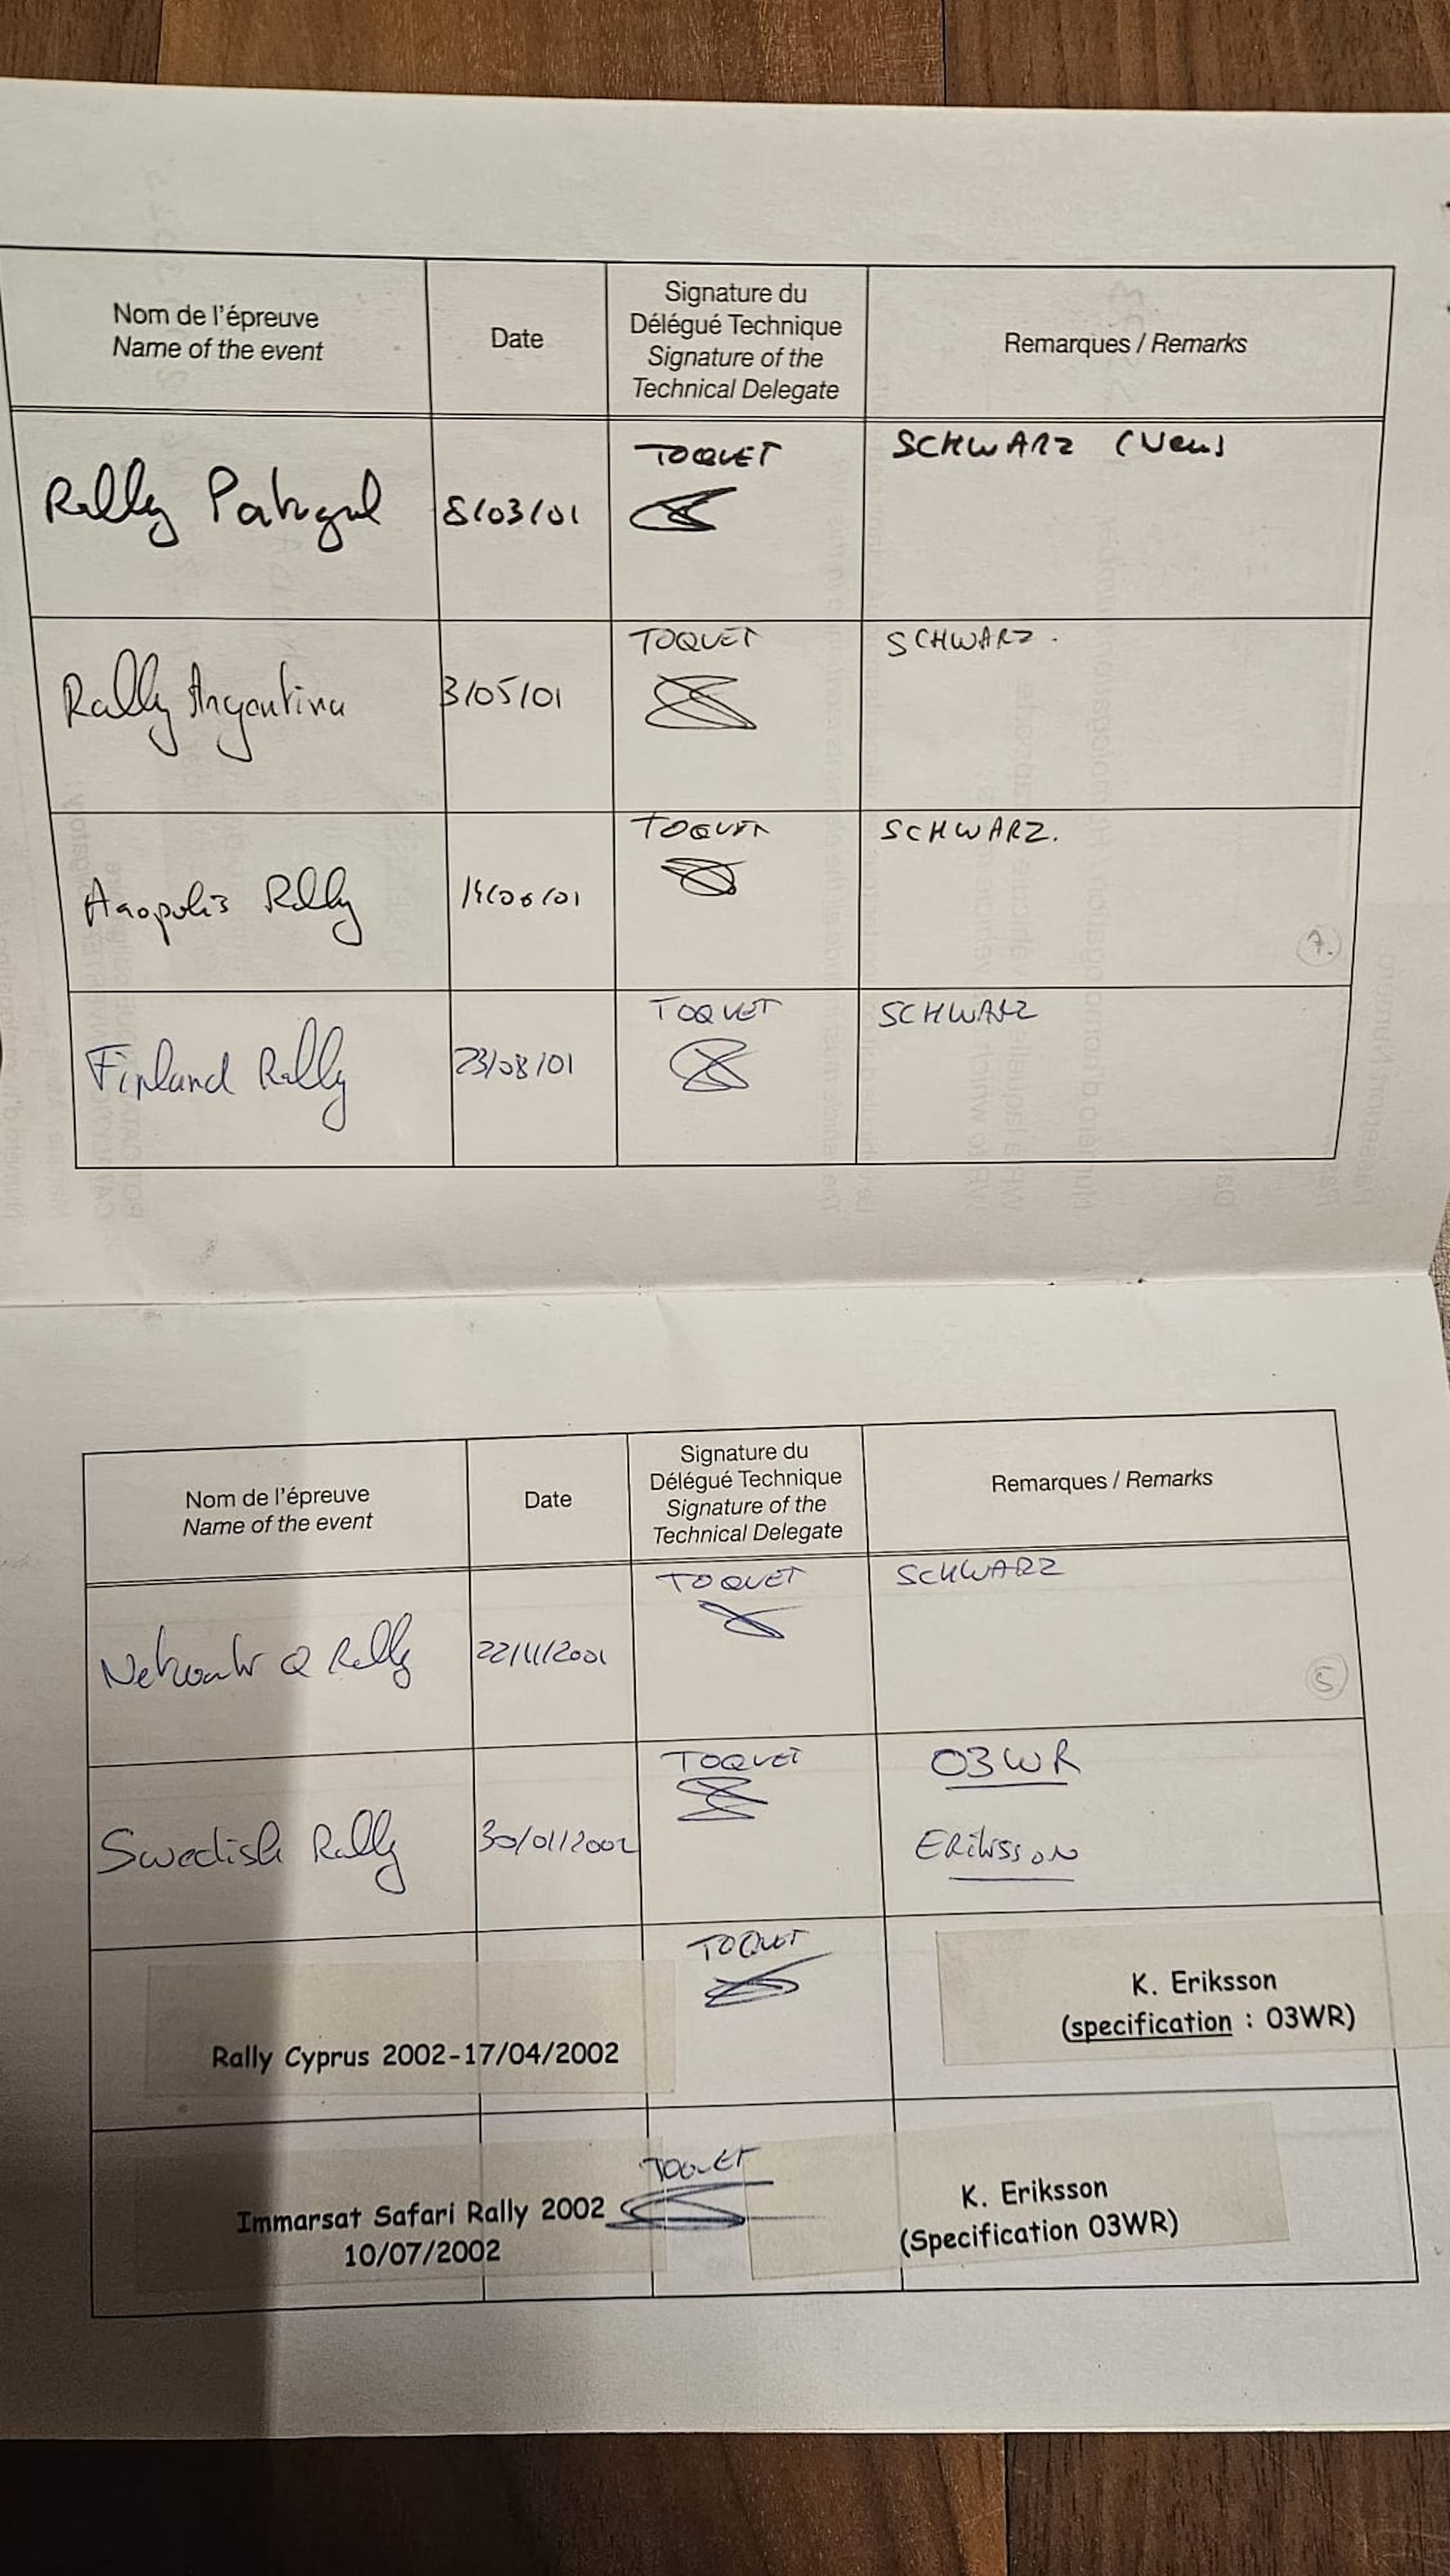 Nom de l'épreuve
Name of the event
Date
Signature du
Délégué Technique
Signature of the
Technical Delegate
Remarques / Remarks
Rally Patugal
8/03/01
TOQUET
SCHWARZ
Rally Argentina
3/05/01
TOQUET
SCHWARZ.
Acropolis Rally
14/06/01
TOQUET
SCHWARZ.
7.
Finland Rally
23/08/01
TOQUET
SCHWARZ
Nom de l'épreuve
Name of the event
Date
Signature du
Délégué Technique
Signature of the
Technical Delegate
Remarques / Remarks
Network Q Rally
22/11/2001
TOQUET
SCHWARZ
5
Swedish Rally
30/01/2002
TOQUET
03WR
ERIKSSON
Rally Cyprus 2002-17/04/2002
TOQUET
K. Eriksson
(specification : 03WR)
Immarsat Safari Rally 2002
10/07/2002
TOQUET
K. Eriksson
(Specification 03WR)